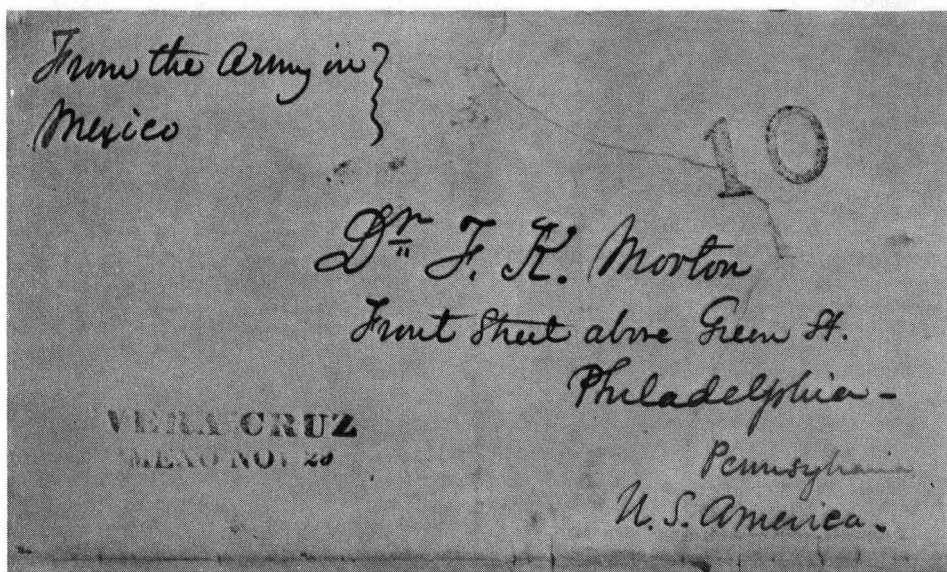 From the Army in
Mexico
10
Dr. F. K. Morton
Front Street above Green St.
Philadelphia-
Pennsylvania
U.S. America.
VERA CRUZ
MEXO NOV